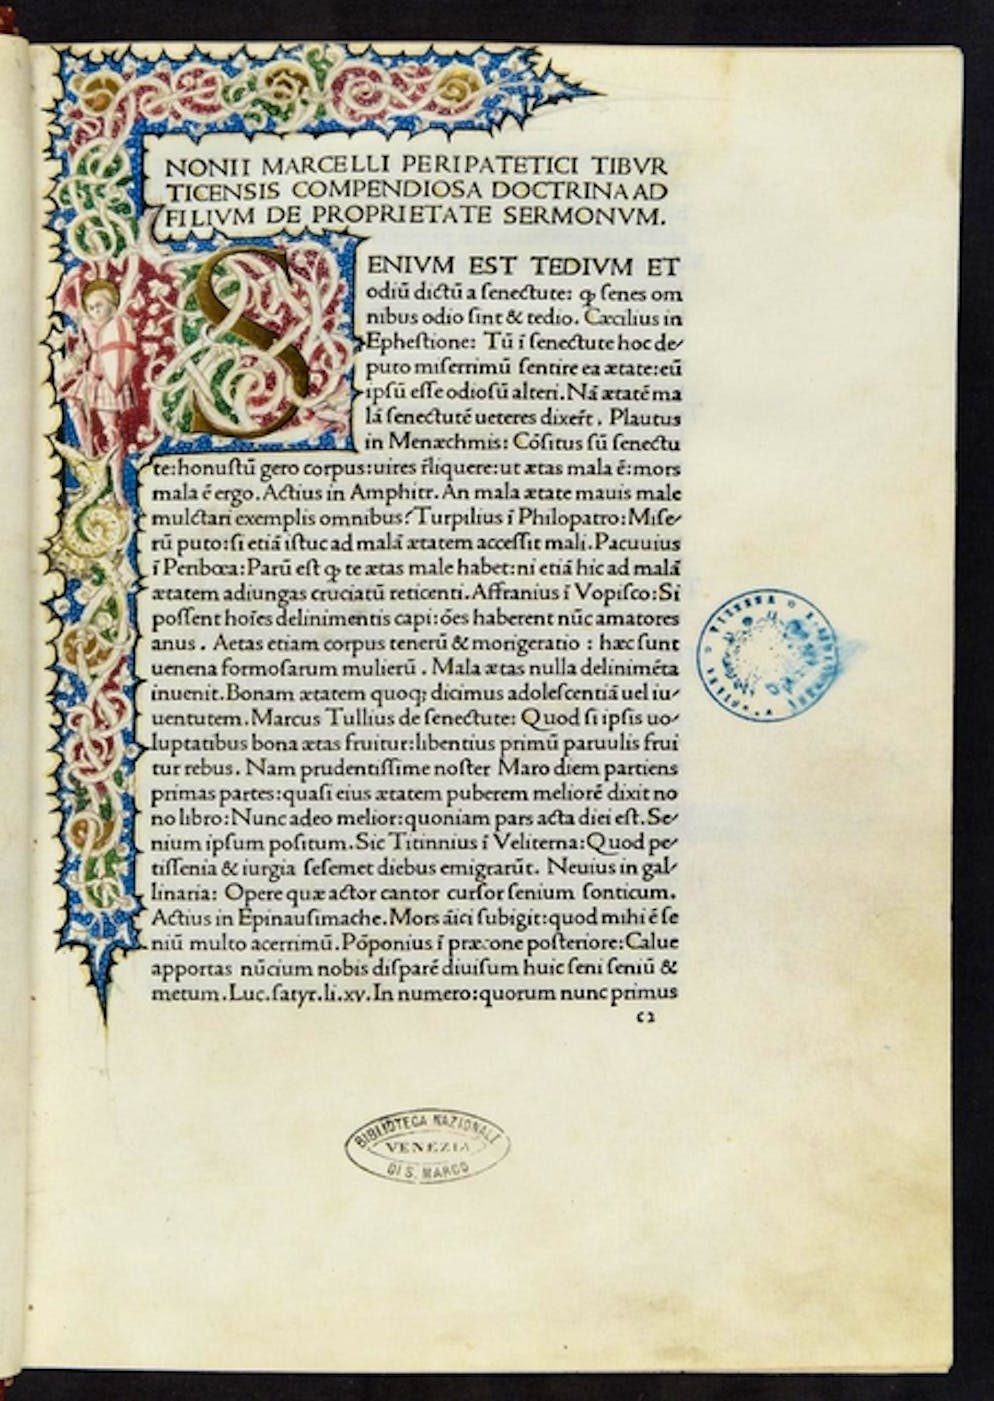 NONII MARCELLI PERIPATETICI TIBVR
TICENSIS COMPENDIOSA DOCTRINA AD
FILIVM DE PROPRIETATE SERMONVM.
SENIVM EST TEDIVM ET
odiū dictū a ſenectute: ꝙ ſenes om
nibus odio ſint & tedio. Cæcilius in
Epheſtione: Tū ī ſenectute hoc de-
puto miſerrimū ſentire ea ætate: eū
ipſū eſſe odioſū alteri. Nā ætatē ma
lā ſenectutē ueteres dixert̄. Plautus
in Menæchmis: Cōſitus ſū ſenectu
te: honuſtū gero corpus: uires r̄liquere: ut ætas mala ē: mors
mala ē ergo. Actius in Amphitr. An mala ætate mauis male
mulctari exemplis omnibus? Turpilius ī Philopatro: Miſe-
rū puto: ſi etiā iſtuc ad malā ætatem acceſſit mali. Pacuuius
ī Peribœa: Parū eſt ꝙ te ætas male habet: ni etiā hic ad malā
ætatem adiungas cruciatū reticenti. Affranius ī Vopiſco: Si
poſſent hoīes delinimentis capi: ōes haberent nūc amatores
anus. Aetas etiam corpus tenerū & morigeratio: hæc ſunt
uenena formoſarum mulierū. Mala ætas nulla delinimēta
inuenit. Bonam ætatem quoqꝫ dicimus adoleſcentiā uel iu-
uentutem. Marcus Tullius de ſenectute: Quod ſi ipſis uo-
luptatibus bona ætas fruitur: libentius primū paruulis frui
tur rebus. Nam prudentiſſime noſter Maro diem partiens
primas partes: quaſi eius ætatem puberem meliorē dixit no
no libro: Nunc adeo melior: quoniam pars acta diei eſt. Se-
nium ipſum poſitum. Sic Titinnius ī Veliterna: Quod pe-
tiſſenia & iurgia ſeſemet diebus emigrarūt. Neuius in gal-
linaria: Opere quæ actor cantor curſor ſenium ſonticum.
Actius in Epinauſimache. Mors āici ſubigit: quod mihi ē ſe
niū multo acerrimū. Pōponius ī præcone poſteriore: Calue
apportas nūcium nobis diſparē diuiſum huic ſeni ſeniū &
metum. Luc. ſatyr. li. xv. In numero: quorum nunc primus
c2
BIBLIOTECA NAZIONALE
VENEZIA
DI S. MARCO